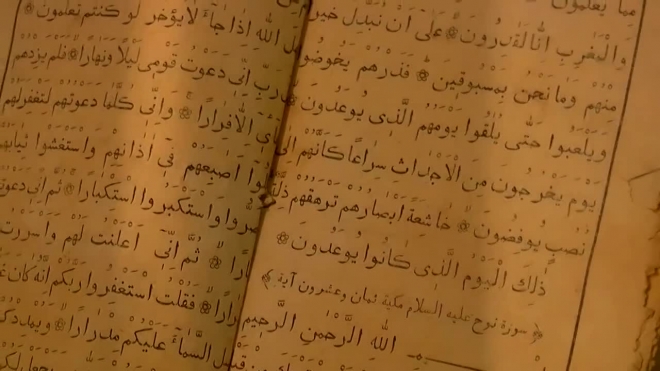 مِمَّا يَعْلَمُونَ
وَالْمَغَرِبِ اِنَّا لَقٰدِرُونَ ۞ عَلٰى اَنْ نُبَدِّلَ خَيْرًا
مِنْهُمْ وَمَا نَحْنُ بِمَسْبُوقِينَ ۞ فَذَرْهُمْ يَخُوضُوا
وَيَلْعَبُوا حَتّٰى يُلٰقُوا يَوْمَهُمُ الَّذِى يُوعَدُونَ ۞
يَوْمَ يَخْرُجُونَ مِنَ الْاَجْدَاثِ سِرَاعًا كَاَنَّهُمْ اِلٰى
نُصُبٍ يُوفِضُونَ ۞ خَاشِعَةً اَبْصَارُهُمْ تَرْهَقُهُمْ ذِلَّةٌ
ذٰلِكَ الْيَوْمُ الَّذِى كَانُوا يُوعَدُونَ ۞
سورة نوح عليه السلام مكية ثمان وعشرون آية
اللهِ الرَّحْمٰنِ الرَّحِيمِ
اللهِ اِذَا جَاءَ لَا يُؤَخَّرُ لَوْ كُنْتُمْ تَعْلَمُونَ ۞
رَبِّ اِنِّى دَعَوْتُ قَوْمِى لَيْلًا وَنَهَارًا ۞ فَلَمْ يَزِدْهُمْ
اِلَّا فِرَارًا ۞ وَاِنِّى كُلَّمَا دَعَوْتُهُمْ لِتَغْفِرَ لَهُمْ
اَصٰبِعَهُمْ فِى اٰذَانِهِمْ وَاسْتَغْشَوْا ثِيَابَهُمْ
وَاسْتَكْبَرُوا اسْتِكْبَارًا ۞ ثُمَّ اِنِّى دَعَوْتُ
ثُمَّ اِنِّى اَعْلَنْتُ لَهُمْ وَاَسْرَرْتُ
فَقُلْتُ اسْتَغْفِرُوا رَبَّكُمْ اِنَّهُ كَانَ
السَّمَاءَ عَلَيْكُمْ مِدْرَارًا ۞